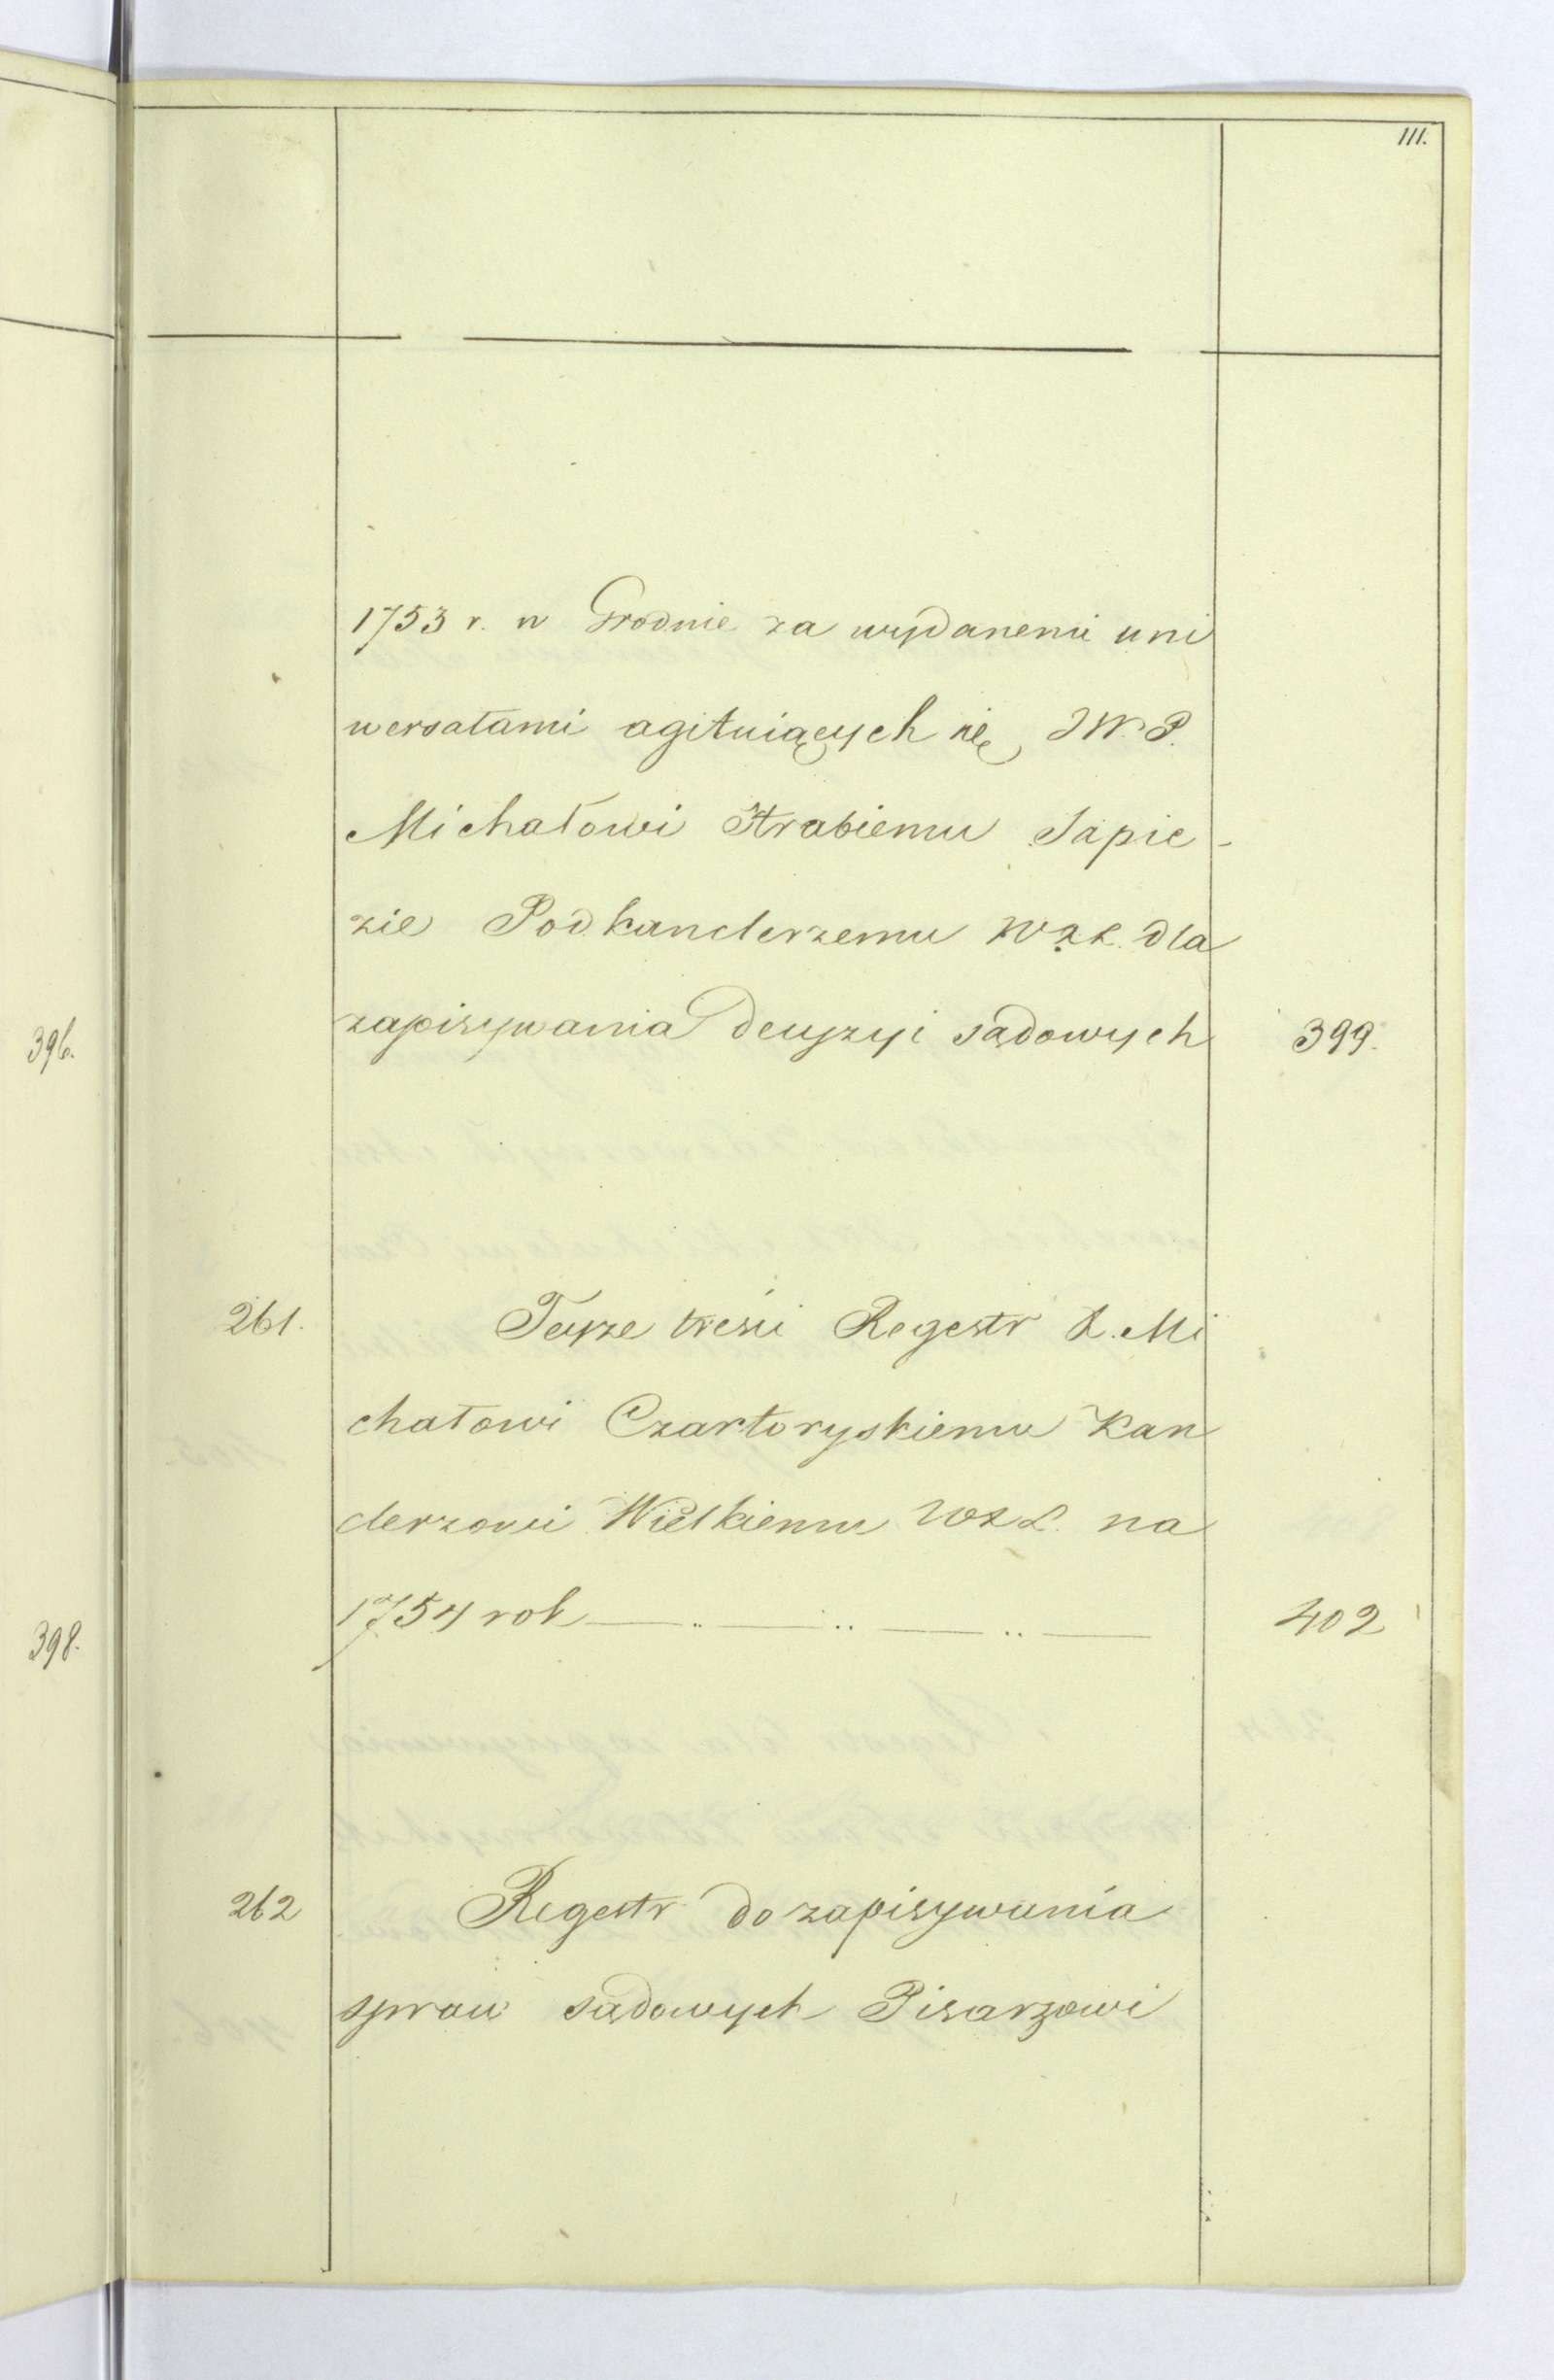 111.
1753 r. w Grodnie za wydanemi uni
wersałami agituiących się JW. P.
Michałowi Hrabiemu Sapie-
zie Podkanclerzemu WXL. dla
zapisywania decyzyi sądowych 399.
261. Teyze treści Regestr X. Mi
chałowi Czartoryskiemu Kan
clerzowi Wielkiemu WXL. na
1754 rok — .. — .. — .. — 402
262 Regestr do zapisywania
spraw sądowych Pisarzowi
396.
398.